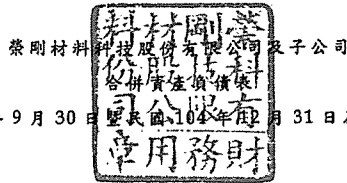 榮剛材料科技股份有限公司及子公司
合併資產負債表
9 月 30 日暨民國 104 年 12 月 31 日
榮剛材料
科技股份
有限公司
財務用章